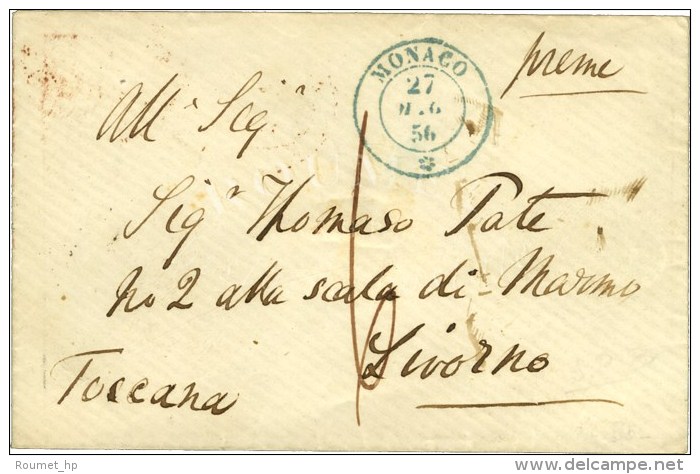 MONACO
27
56
preme
All' Sig.
Sig.r Thomaso Pate
No 2 alla scala di Marmo
Livorno
Toscana
© Roumet_hp
delcampe.net